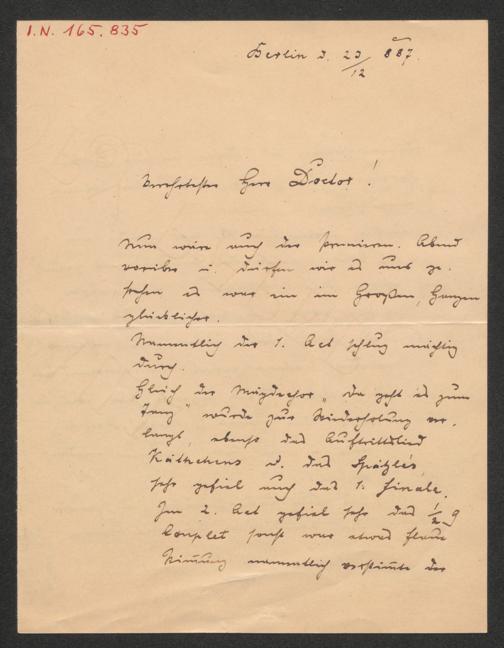 I.N. 165.835
Berlin d. 23/12 887.
Verehrtester Herr Doctor!
Nun wäre auch der Premieren-Abend
vorüber u. dürfen wir es uns ge-
stehen es war ein im Großen, Ganzen
glücklicher.
Namentlich der 1. Act schlug mächtig
durch.
Gleich der Mägdechor "da geht es zum
Tanz" wurde zur Wiederholung ver-
langt, ebenso das Auftrittslied
Käthchens u. das Spätzles
sehr gefiel auch das 1. Finale.
Im 2. Act gefiel sehr das
Couplet sonst war etwas flaue
Stimmung namentlich verstimte der